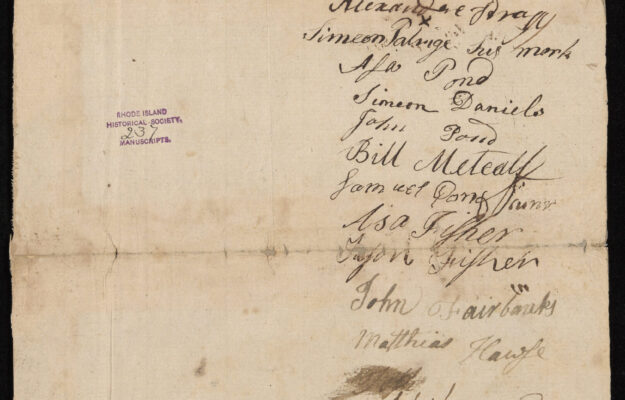 Alexander Dragg
x
Simeon Palrige his mark
Asa Pond
Simeon Daniels
John Pond
Bill Metcalf
Samuel
Asa Fisher
Jason Fisher
John Fairbanks
Matthias Hawse
RHODE ISLAND
HISTORICAL SOCIETY,
237
MANUSCRIPTS.